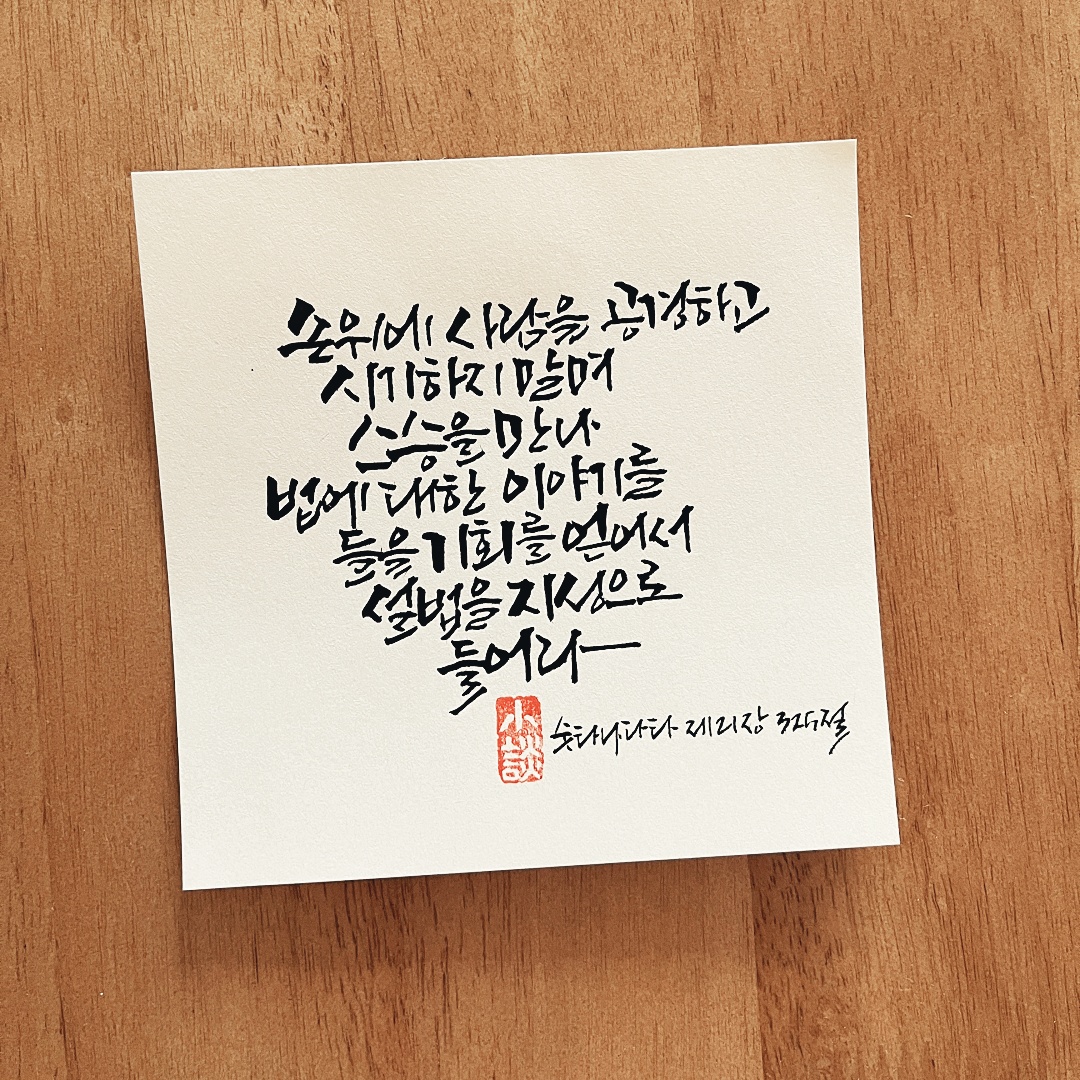 손위에 사람을 공경하고
시기하지 말며
스승을 만나
법에 대한 이야기를
들을 기회를 얻어서
설법을 지성으로
들어라
小談
숫타니파타 제2장 325절